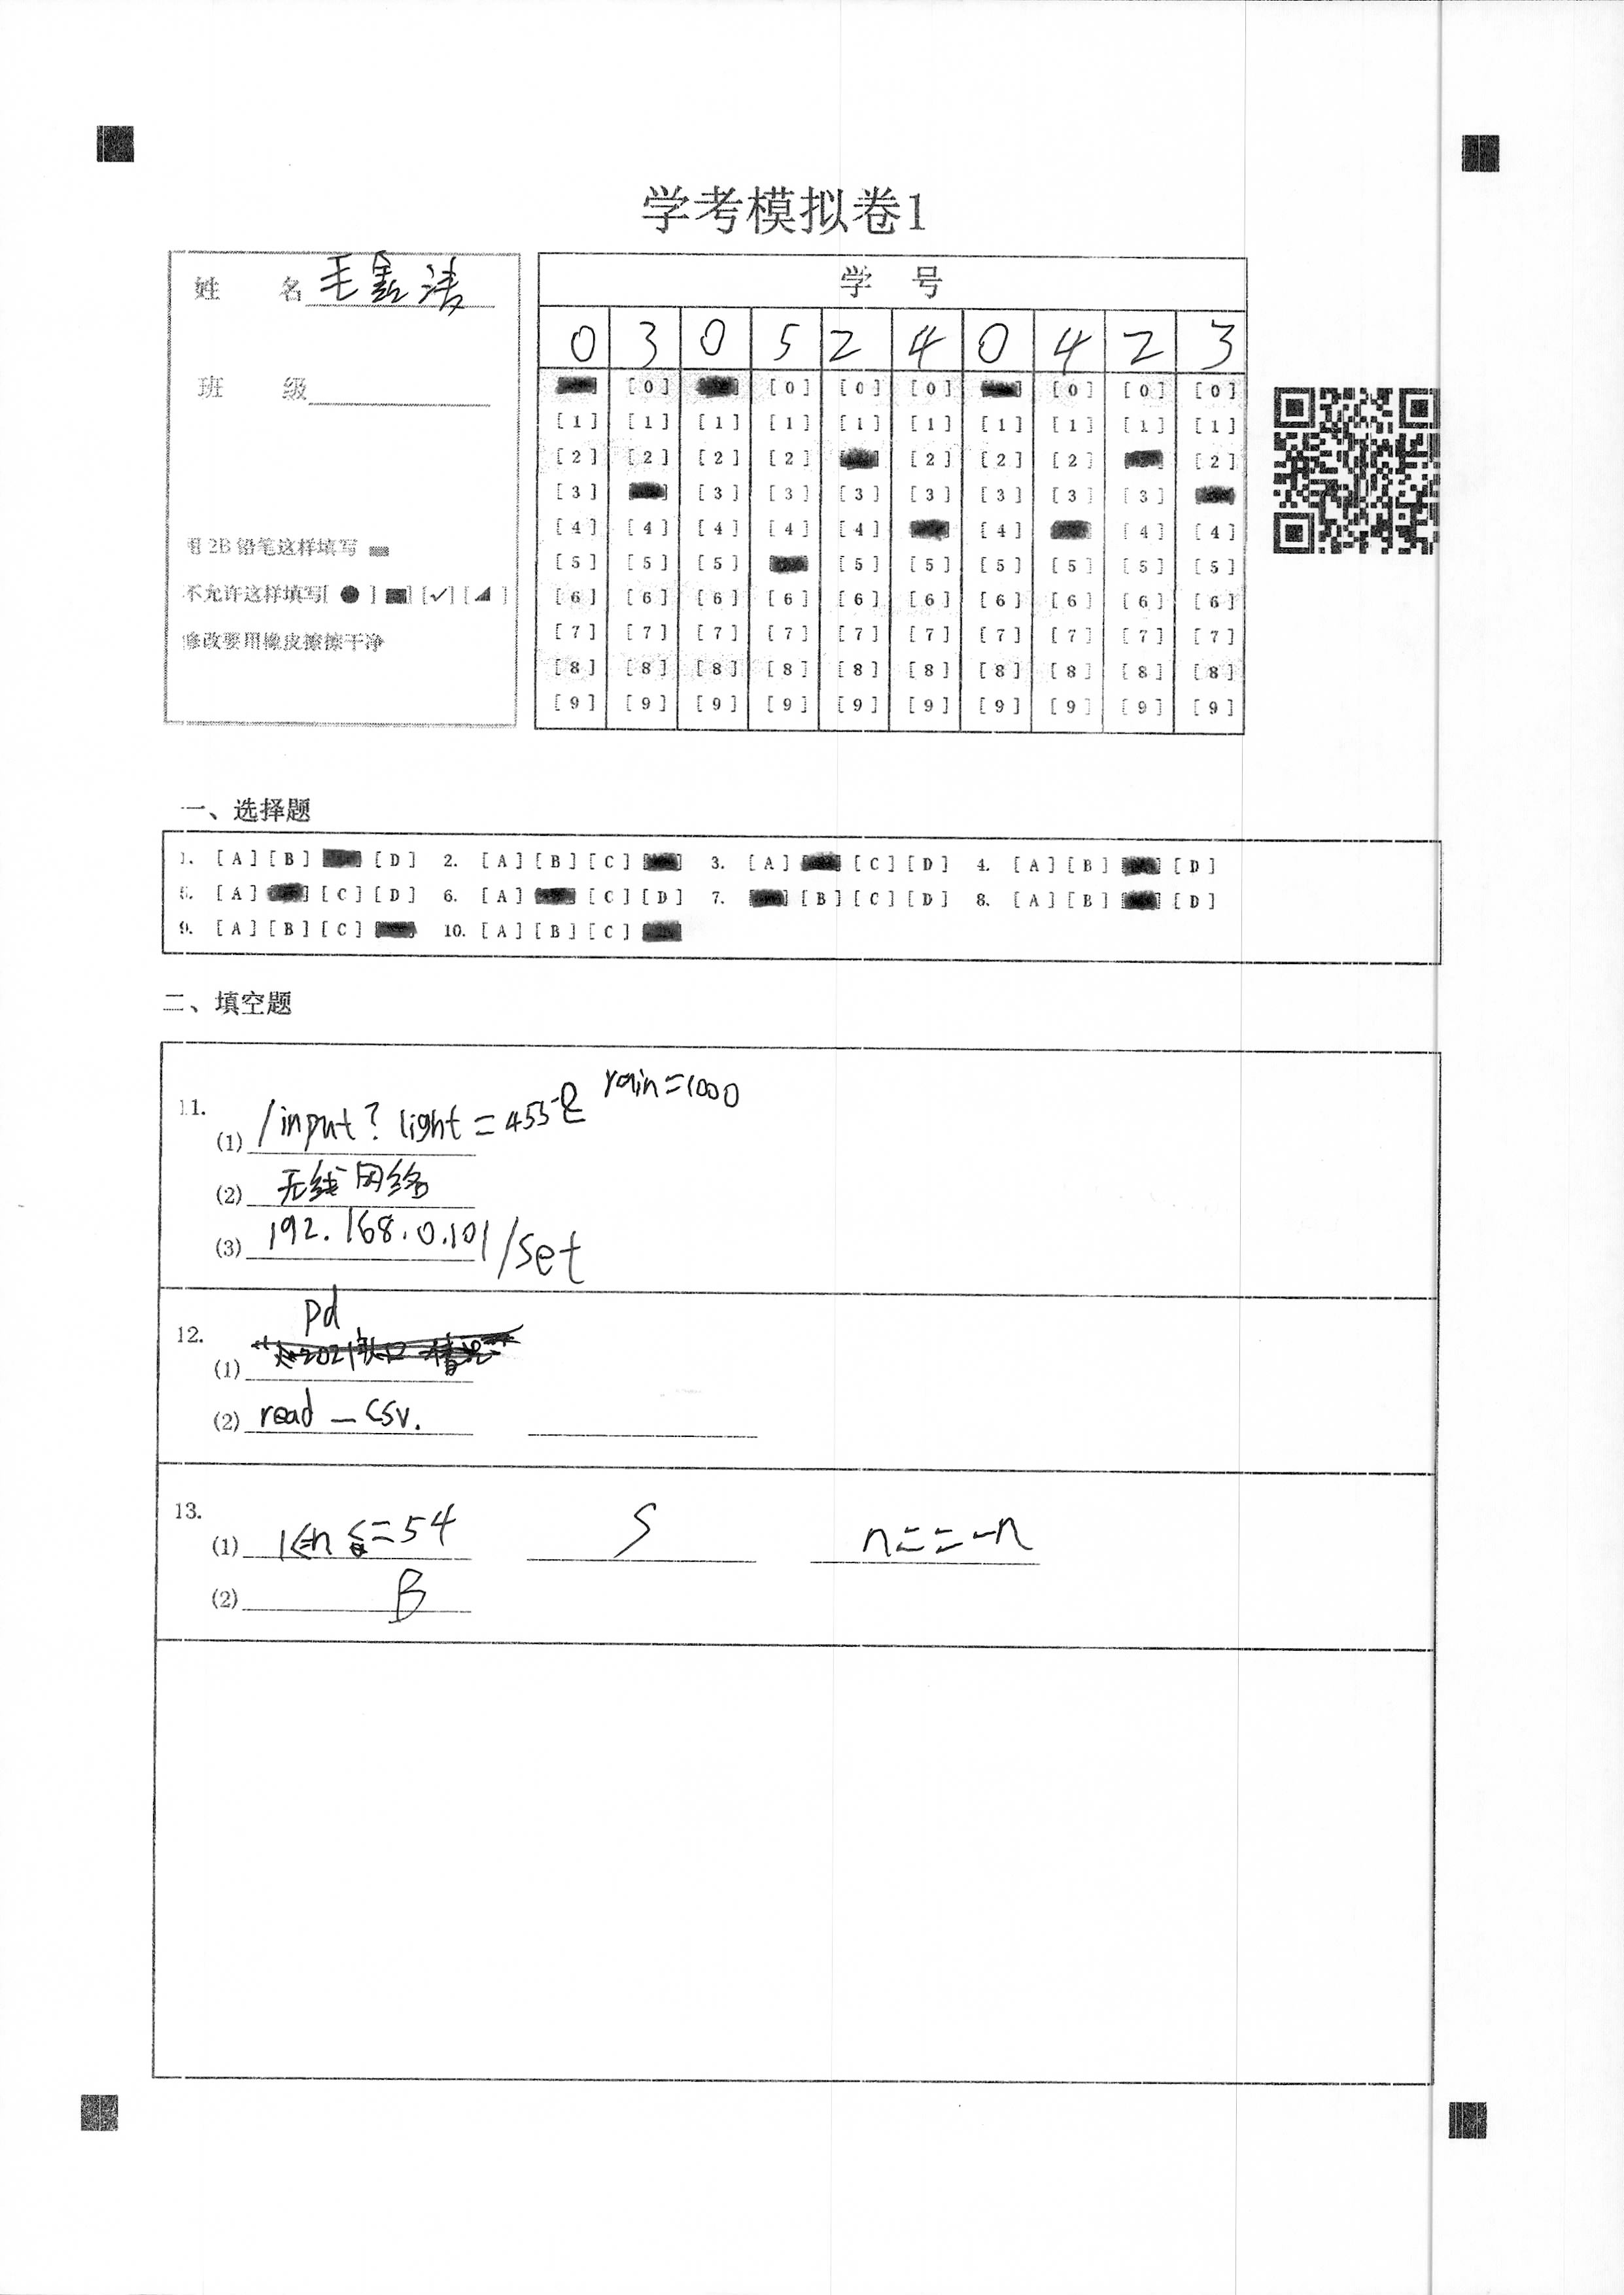 学考模拟卷1
姓 名 毛鑫涛
班 级
用2B铅笔这样填写
不允许这样填写[ ● ] [✓] [ ]
修改要用橡皮擦擦干净
学 号
0 3 0 5 2 4 0 4 2 3
[0] [0] [0] [0] [0] [0] [0]
[1] [1] [1] [1] [1] [1] [1] [1] [1] [1]
[2] [2] [2] [2] [2] [2] [2] [2]
[3] [3] [3] [3] [3] [3] [3] [3]
[4] [4] [4] [4] [4] [4] [4] [4]
[5] [5] [5] [5] [5] [5] [5] [5] [5]
[6] [6] [6] [6] [6] [6] [6] [6] [6] [6]
[7] [7] [7] [7] [7] [7] [7] [7] [7] [7]
[8] [8] [8] [8] [8] [8] [8] [8] [8] [8]
[9] [9] [9] [9] [9] [9] [9] [9] [9] [9]
一、选择题
1. [A] [B] [D] 2. [A] [B] [C] 3. [A] [C] [D] 4. [A] [B] [D]
5. [A] [C] [D] 6. [A] [C] [D] 7. [B] [C] [D] 8. [A] [B] [D]
9. [A] [B] [C] 10. [A] [B] [C]
二、填空题
11.
(1) /input? light = 455 & rain=1000
(2) 无线网络
(3) 192.168.0.101/set
12.
(1) pd
(2) read_csv.
13.
(1) =54 S n==-n
(2) B